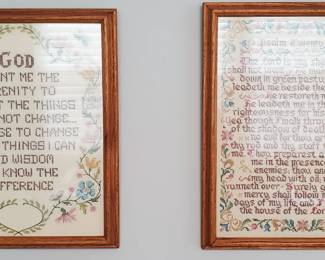 GOD
NT ME THE
RENITY TO
T THE THINGS
NOT CHANGE...
GE TO CHANGE
THINGS I CAN
D WISDOM
KNOW THE
FFERENCE
Psalm Twenty
The Lord is my she
shall not want he ma
down in green pastu
leadeth me beside the
he restoreth m
he leadeth me in th
righteousness for his
tho I walk through
of the shadow of deat
no evil for thou
thy rod and thy staff
me Thou preparest a
me in the presence
enemies; thou an
my head with oil; m
runneth over Surely
mercy shall follow
days of my life and
the house of the Lor